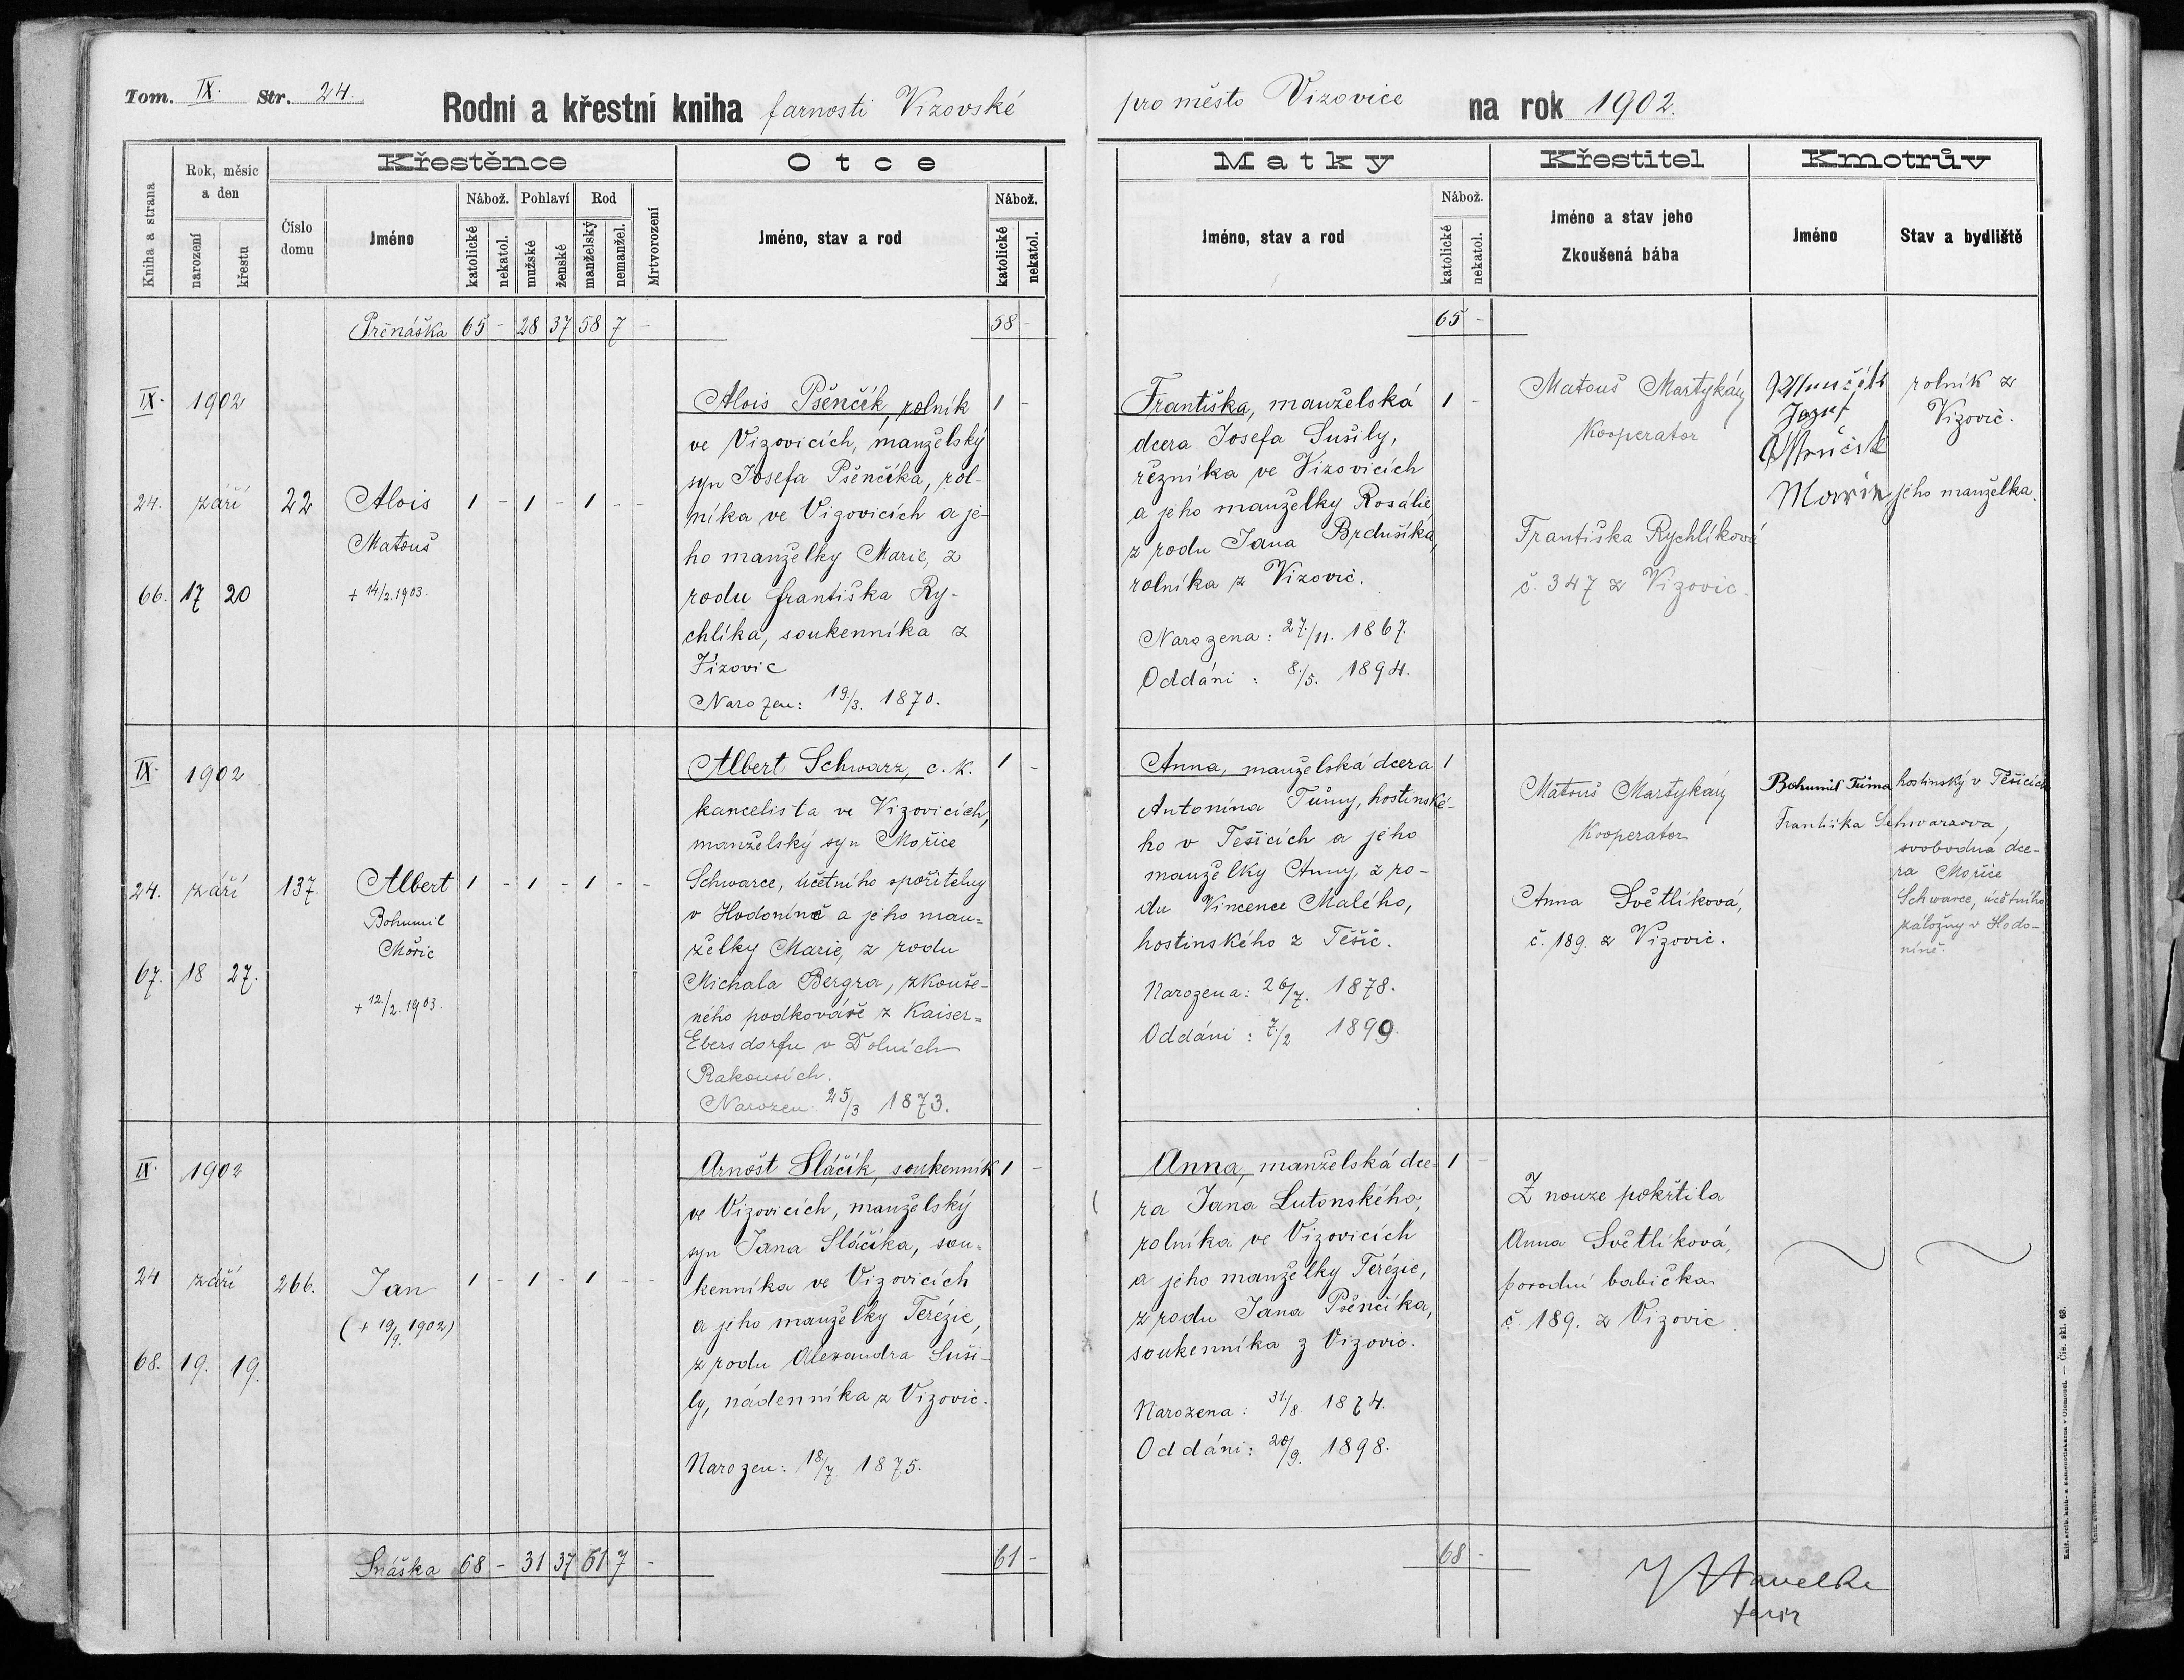 Tom. IX. Str. 24.
Rodní a křestní kniha farnosti Vizovské
pro město Vizovice na rok 1902.
Kniha a strana
Rok, měsíc
a den
narození
křestu
Křestěnce
Číslo
domu
Jméno
Nábož.
katolické
nekatol.
Pohlaví
mužské
ženské
Rod
manželský
nemanžel.
Mrtvorození
Otce
Jméno, stav a rod
Nábož.
katolické
nekatol.
Matky
Jméno, stav a rod
Nábož.
katolické
nekatol.
Křestitel
Jméno a stav jeho
Zkoušená bába
Kmotrův
Jméno
Stav a bydliště
Přenáška 65 - 28 37 58 7 - 58 -
65 -
IX. 1902
24. září 22
66. 17 20
Alois 1 - 1 - 1 - -
Matouš
+ 14/2. 1903.
Alois Pšenčík, rolník 1 -
ve Vizovicích, manželský
syn Josefa Pšenčíka, rol-
níka ve Vizovicích a je-
ho manželky Marie, z
rodu Františka Ry-
chlíka, soukenníka z
Vizovic
Narozen: 19./3. 1870.
Františka, manželská 1 -
dcera Josefa Sušily,
řezníka ve Vizovicích
a jeho manželky Rosálie
z rodu Jana Brdušíka,
rolníka z Vizovic.
Narozena: 27./11. 1867.
Oddáni: 8./5. 1894.
Matouš Martykán
Kooperator
Františka Rychlíková
č. 347 z Vizovic.
Josef
Marie
rolník z
Vizovic.
jeho manželka.
IX. 1902
24. září 137.
67. 18 27.
Albert 1 - 1 - 1 - -
Bohumil
Mořic
+ 12./2. 1903.
Albert Schwarz, c. k. 1 -
kancelista ve Vizovicích,
manželský syn Mořice
Schwarce, účetního spořitelny
v Hodoníně a jeho man=
želky Marie, z rodu
Michala Bergra, zkouše-
ného podkováře z Kaiser=
Ebersdorfu v Dolních
Rakousích.
Narozen 25/3 1873.
Anna, manželská dcera 1
Antonína Tůmy, hostinské-
ho v Těšicích a jeho
manželky Anny, z ro-
du Vincence Malého,
hostinského z Těšic.
Narozena: 26/7. 1878.
Oddáni: 7./2 1899.
Matouš Martykán
Kooperator
Anna Světlíková,
č. 189. z Vizovic.
Bohumil Tůma hostinský v Těšicích
Františka Schwarzova,
svobodná dce-
ra Mořice
Schwarce, účetního
záložny v Hodo-
níně.
IX. 1902
24 září 266.
68. 19. 19.
Jan 1 - 1 - 1 - -
(+ 19/9. 1902)
Arnošt Sláčík, soukenník 1 -
ve Vizovicích, manželský
syn Jana Sláčíka, sou=
kenníka ve Vizovicích
a jeho manželky Terézie,
z rodu Alexandra Suši-
ly, nádenníka z Vizovic.
Narozen: 18./7. 1875.
Anna, manželská dce- 1 -
ra Jana Lutonského,
rolníka ve Vizovicích
a jeho manželky Terézie,
z rodu Jana Pšenčíka,
soukenníka z Vizovic.
Narozena: 31./8. 1874.
Oddáni: 20/9. 1898.
Z nouze pokřtila
Anna Světlíková,
porodní babička
č. 189. z Vizovic.
Snáška 68 - 31 37 61 7 - 61 -
68 -
J Havelka
farář
Knět. arcib. knih- a kamenotiskárna v Olomouci. — Čís. skl. 63.